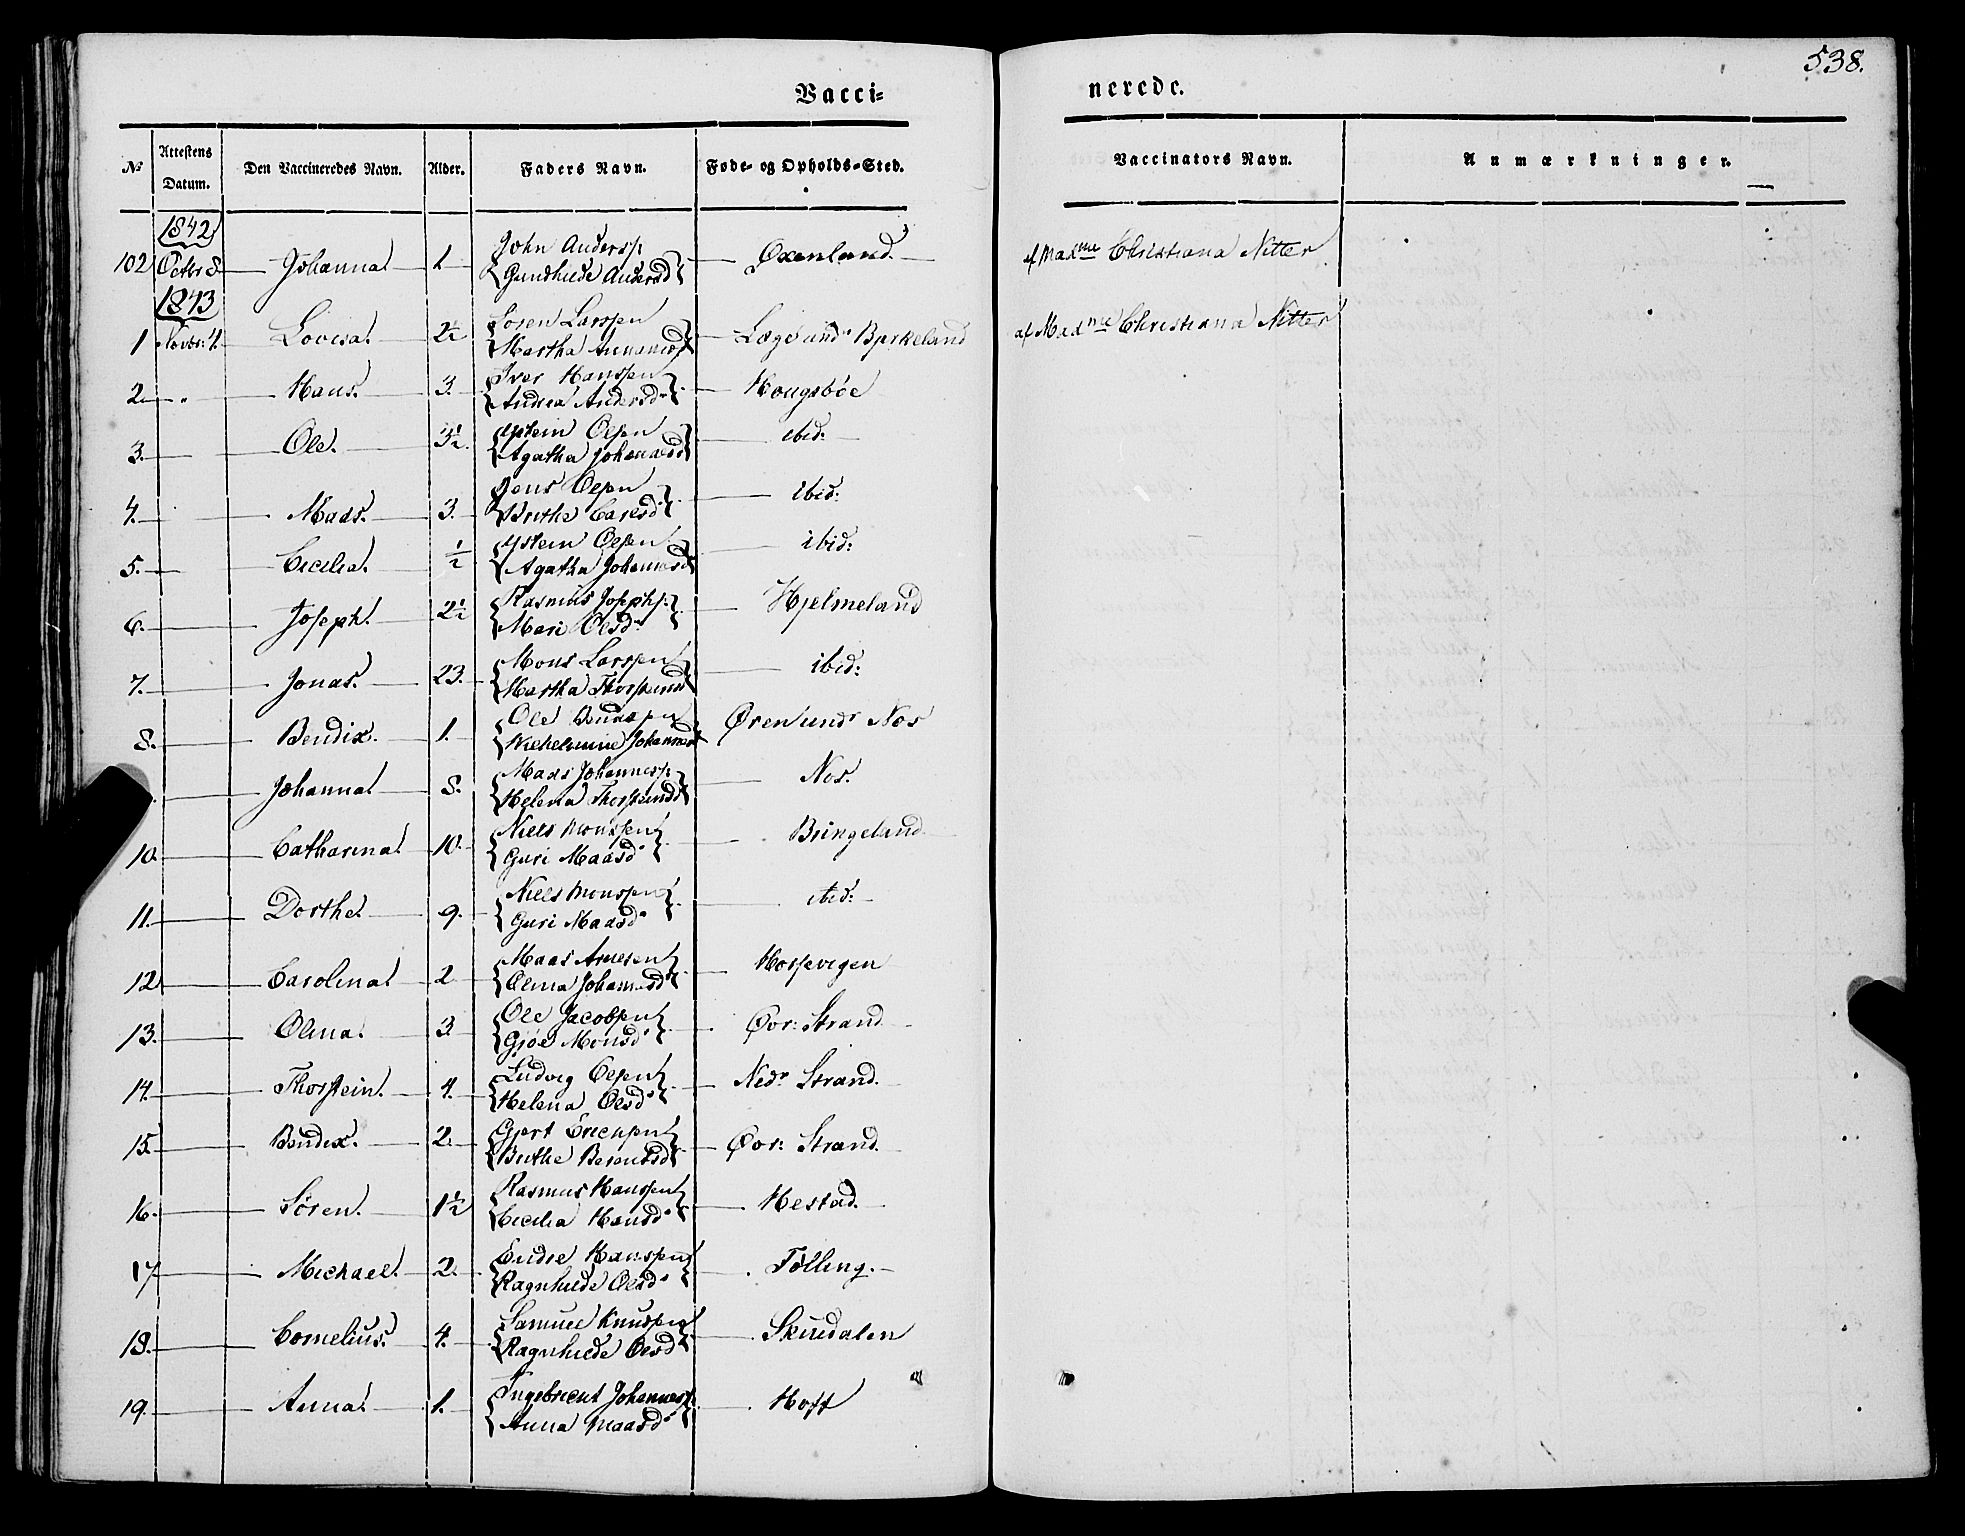 538.
Vacci=
nerede.
No Attestens Datum. Den Vaccineredes Navn. Alder. Faders Navn. Føde- og Opholds-Sted. Vaccinators Navn. Anmærkninger.
1842
102 Octbr 8. Johanna 1 John Anderss. Gunhilde Andersd Oxenland. af Madme Christiana Nitter
1843
1 Novbr: 4. Lovisa 2½ Soren Larssen Martha Lægd und Byrkeland af Madme Christiana Nitter
2. Hans. 3. Iver Hanssen Andrea Andersd Hougsbøe
3. Ole. 3½ Ystein Olsen Agatha Johannesd ibid:
4. Mads. 3. Jens Olsen Brithe Carlsd ibid:
5. Cecilia. ½ Ystein Olsen Agatha Johannesd ibid:
6. Joseph. 2½ Rasmus Josephs. Mari Olsd Hjelmeland
7. Jonas. 23. Mons Larssen Martha Thorsteinsd ibid:
8. Bendix. 1. Ole Wilhelmine Johannesd Øren undr Nes
Johanna 8. Mads Johanness. Helena Thorsteinsd Nes.
10. Catharina 10. Niels Monssen Guri Maasd Bringeland
11. Dorthe 9. Niels Monssen Guri Maasd ibid:
12 Carolina 2 Maas Arnesen Olina Johannesd
13. Olina. 3 Ole Jacobsen Gjøe Monsd Øvr: Strand
14. Thorstein. 4. Ludvig Olsen Helena Olsd Nedr Strand.
15. Bendix. 2. Gjert Ericksen Brithe Berentsd Øvr: Strand
16. Søren. 1½ Rasmus Hanssen Cecilia Hansd Hestad.
17 Michael. 2. Endre Hanssen Ragnhilde Olsd Tølling.
18. Cornelius. 4. Samuel Knudsen Ragnhilde Olsd Skiredalen
19. Anna. 1. Ingebricht Johanness. Anna Maasd Hoft